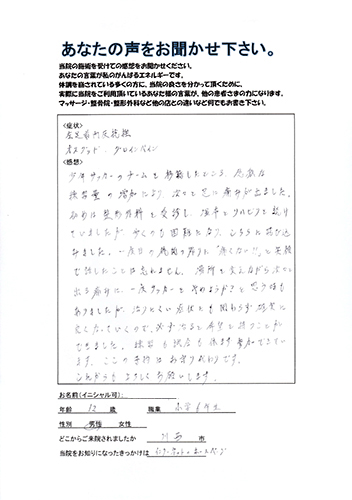 あなたの声をお聞かせ下さい。
当院の施術を受けての感想をお聞かせください。
あなたの言葉が私のがんばるエネルギーです。
体調を崩されている多くの方に、当院の良さを分かって頂くために、
実際に当院をご利用頂いているあなた様の言葉が、他の患者さまの力になります。
マッサージ・整骨院・整形外科など他の店との違いなど何でもお書き下さい。
<症状>
オスグッド グロインペイン
<感想>
少年サッカーのチームを移籍したところ、急激な
練習量の増加により、次々と足に痛みが出ました。
初めは整形外科を受診し、
いましたが 歩くのも困難になり、こちらに
ました。一度目の施術の帰りに「痛くない!!」と笑顔
で話したことは忘れません。場所を変えながら次々と
出る痛みに、一度サッカーを やめようか と思う
ありましたが、治りにくい症状にも関わらず 確実に
良くなっていくので、必ず治ると希望を持つことが
できました。練習も試合も休まず参加できてい
ます。ここの
これからも よろしくお願いします。
お名前(イニシャル可):
年齢 12 歳 職業 小学6年生
性別 男性 女性
どこからご来院されましたか 川西 市
当院をお知りになったきっかけは インターネットのホームページ